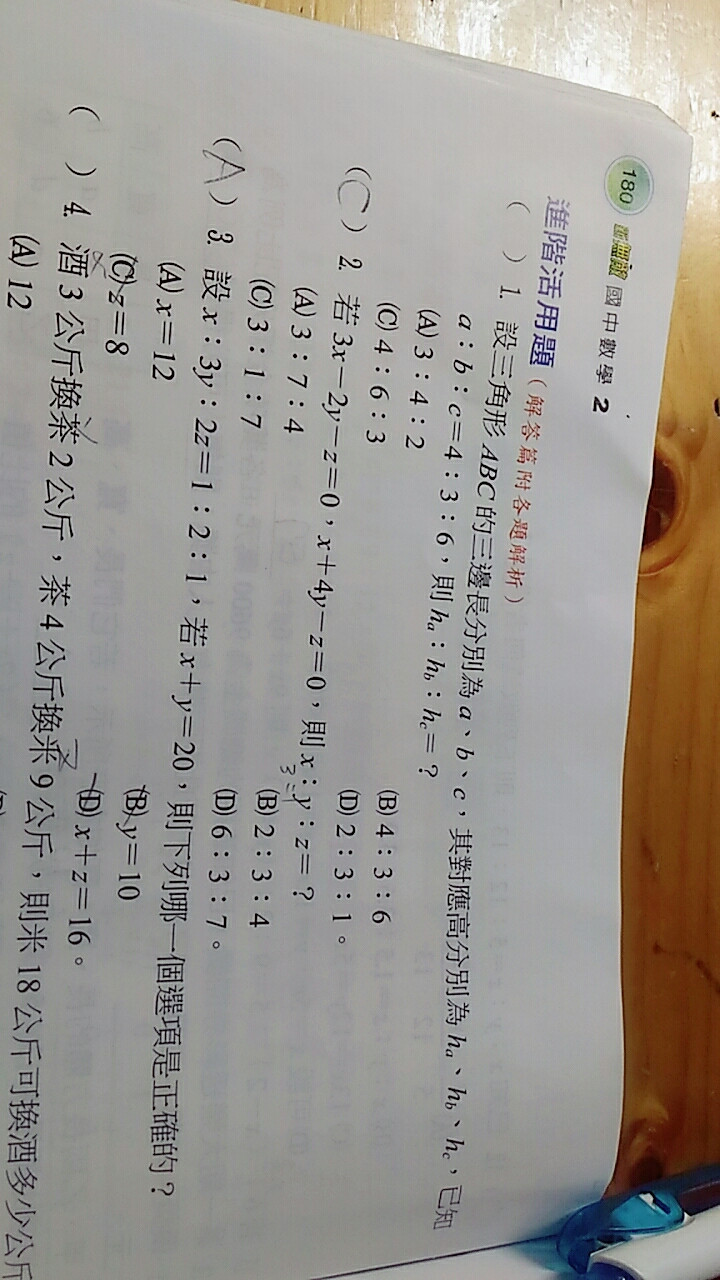 180 國中數學 2
進階活用題(解答篇附各題解析)
( ) 1. 設三角形 ABC 的三邊長分別為 a、b、c,其對應高分別為 hₐ、h_b、h_c,已知
a:b:c=4:3:6,則 hₐ:h_b:h_c=?
(A) 3:4:2 (B) 4:3:6
(C) 4:6:3 (D) 2:3:1。
(C) 2. 若 3x-2y-z=0,x+4y-z=0,則 x:y:z=?
3:1
(A) 3:7:4 (B) 2:3:4
(C) 3:1:7 (D) 6:3:7。
(A) 3. 設 x:3y:2z=1:2:1,若 x+y=20,則下列哪一個選項是正確的?
(A) x=12 (B) y=10
(C) z=8 (D) x+z=16。
( ) 4. 酒 3 公斤換茶 2 公斤,茶 4 公斤換米 9 公斤,則米 18 公斤可換酒多少公斤
(A) 12